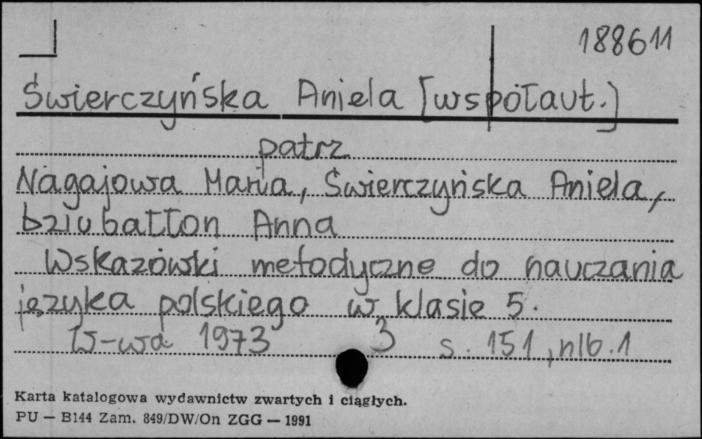 188611
Świerczyńska Aniela [współaut.]
patrz
Nagajowa Maria, Świerczyńska Aniela,
Dziubałłon Anna
Wskazówki metodyczne do nauczania
języka polskiego w klasie 5.
W-wa 1973 3 s. 151, nlb. 1
Karta katalogowa wydawnictw zwartych i ciągłych.
PU — B144 Zam. 849/DW/On ZGG — 1991